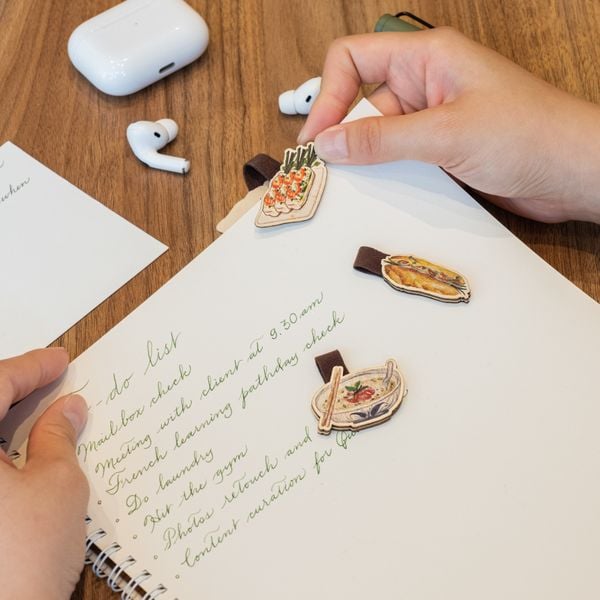 -do list
Mailbox check
Meeting with client at 9.30 am
French learning pathday check
• Do laundry
• Hit the gym
• Photos retouch and
• Content curation for